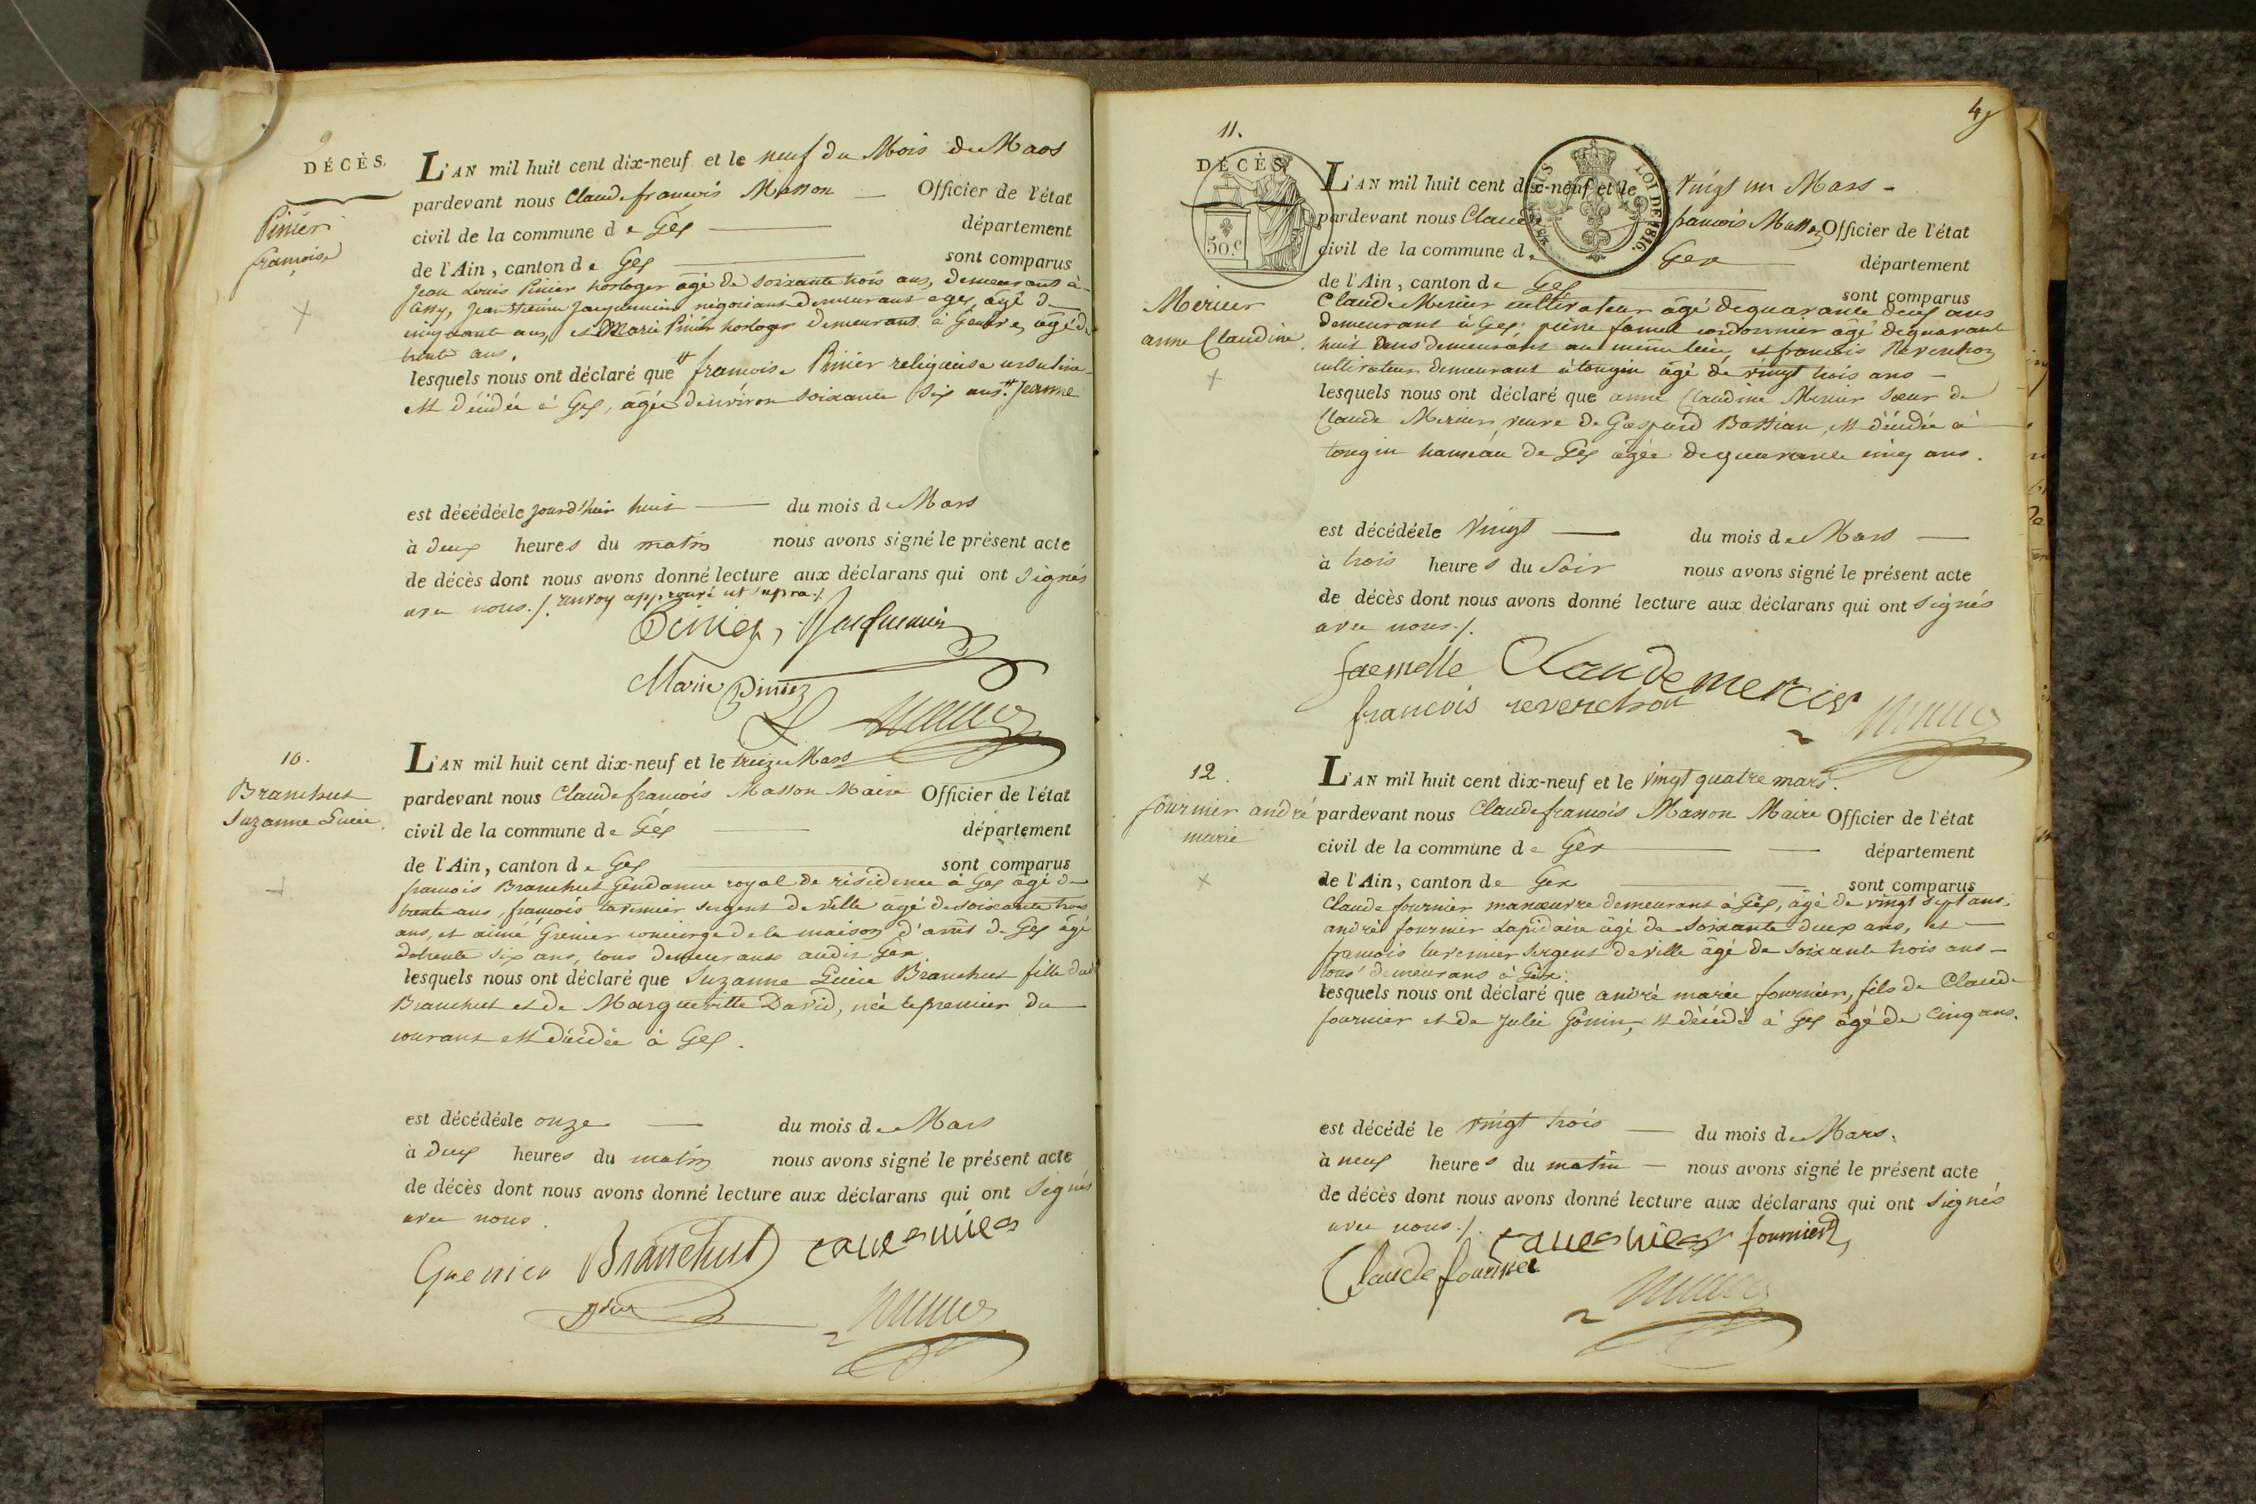 9
DÉCÈS.
Pinier
francoise
L'AN mil huit cent dix-neuf et le neuf du Mois de Mars
pardevant nous Claude francois Masson Officier de l'état
civil de la commune de Gex département
de l'Ain, canton de Gex sont comparus
Jean Louis Pinier horloger âgé de soixante trois ans, demeurant à
Cessy, Jean Etienne Jacquemin négociant demeurant a gex, âgé de
cinquante ans, et Marie Pinier horloger demeurant à Genève, âgé de
trente ans.
lesquels nous ont déclaré que # francoise Pinier religieuse ursuline
est décédée à Gex, âgée d'environ soixante six ans. # Jeanne
est décédée le jourd'hier huit du mois de Mars
à deux heures du matin nous avons signé le présent acte
de décès dont nous avons donné lecture aux déclarans qui ont signés
avec nous./. renvoy approuvé ut supra./.
Pinier, Jacquemin
Marie Pinier
10.
Branchut
Suzanne Lucie.
L'AN mil huit cent dix-neuf et le treize Mars
pardevant nous Claude francois Masson Maire Officier de l'état
civil de la commune de Gex département
de l'Ain, canton de Gex sont comparus
francois Branchut Gendarme royal de résidence à Gex âgé de
trente ans, francois tavernier sergent de ville agé de soixante trois
ans, et aimé Grenier concierge de la maison d'arrêt de Gex âgé
de trente six ans, tous demeurans audit Gex
lesquels nous ont déclaré que Suzanne Lucie Branchut fille dud
Branchut et de Margueritte David, née le premier du
courant est décédée à Gex.
est décédée le onze du mois de Mars
à deux heures du matin nous avons signé le présent acte
de décès dont nous avons donné lecture aux déclarans qui ont signés
avec nous.
Grenier Branchut tavernier
4
11.
DÉCÈS.
50.c
LOI DE 1816.
Mercier
anne Claudine.
L'AN mil huit cent dix-neuf et le vingt un Mars
pardevant nous Claude francois Masson Officier de l'état
civil de la commune de Gex département
de l'Ain, canton de Gex sont comparus
Claude Mercier cultivateur âgé de quarante deux ans
demeurant à Gex; pierre famel cordonnier âgé de quarante
huit ans demeurant au même lieu et francois Reverchon
cultivateur demeurant à tougin âgé de vingt trois ans
lesquels nous ont déclaré que anne Claudine Mercier soeur de
Claude Mercier, veuve de Gaspard Bastian, est décédée à
tougin hameau de Gex âgée de quarante cinq ans.
est décédée le vingt du mois de Mars
à trois heures du Soir nous avons signé le présent acte
de décès dont nous avons donné lecture aux déclarans qui ont signés
avec nous./.
faemelle Claude mercier
francois reverchon
12.
fournier andré
marie
L'AN mil huit cent dix-neuf et le vingt quatre mars.
pardevant nous Claude francois Masson Maire Officier de l'état
civil de la commune de Gex département
de l'Ain, canton de Gex sont comparus
Claude fournier manoeuvre demeurant à Gex, âgé de vingt sept ans;
andré fournier Lapidaire âgé de soixante deux ans, et
francois tavernier sergent de ville âgé de soixante trois ans
tous demeurans à Gex.
lesquels nous ont déclaré que andré marie fournier, fils de Claude
fournier et de Julie Gonin, est décédé à Gex âgé de Cinq ans.
est décédé le vingt trois du mois de Mars.
à neuf heures du matin nous avons signé le présent acte
de décès dont nous avons donné lecture aux déclarans qui ont signés
avec nous./. tavernier fournier,
Claude fournier